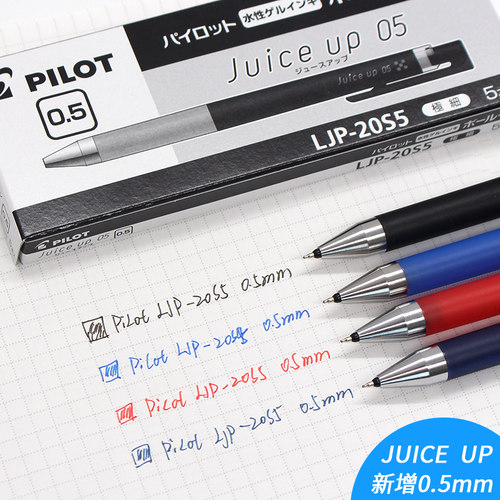 PILOT
0.5
パイロット 水性ゲルインキ
Juice up 05
ジュースアップ
Juice up 05
LJP-20S5 極細
パイロット 水性ゲルインキ ボール
PILOT Juice up 0.5
Pilot LJP-20S5 0.5mm
Pilot LJP-20S5 0.5mm
Pilot LJP-20S5 0.5mm
Pilot LJP-20S5 0.5mm
JUICE UP
新增0.5mm